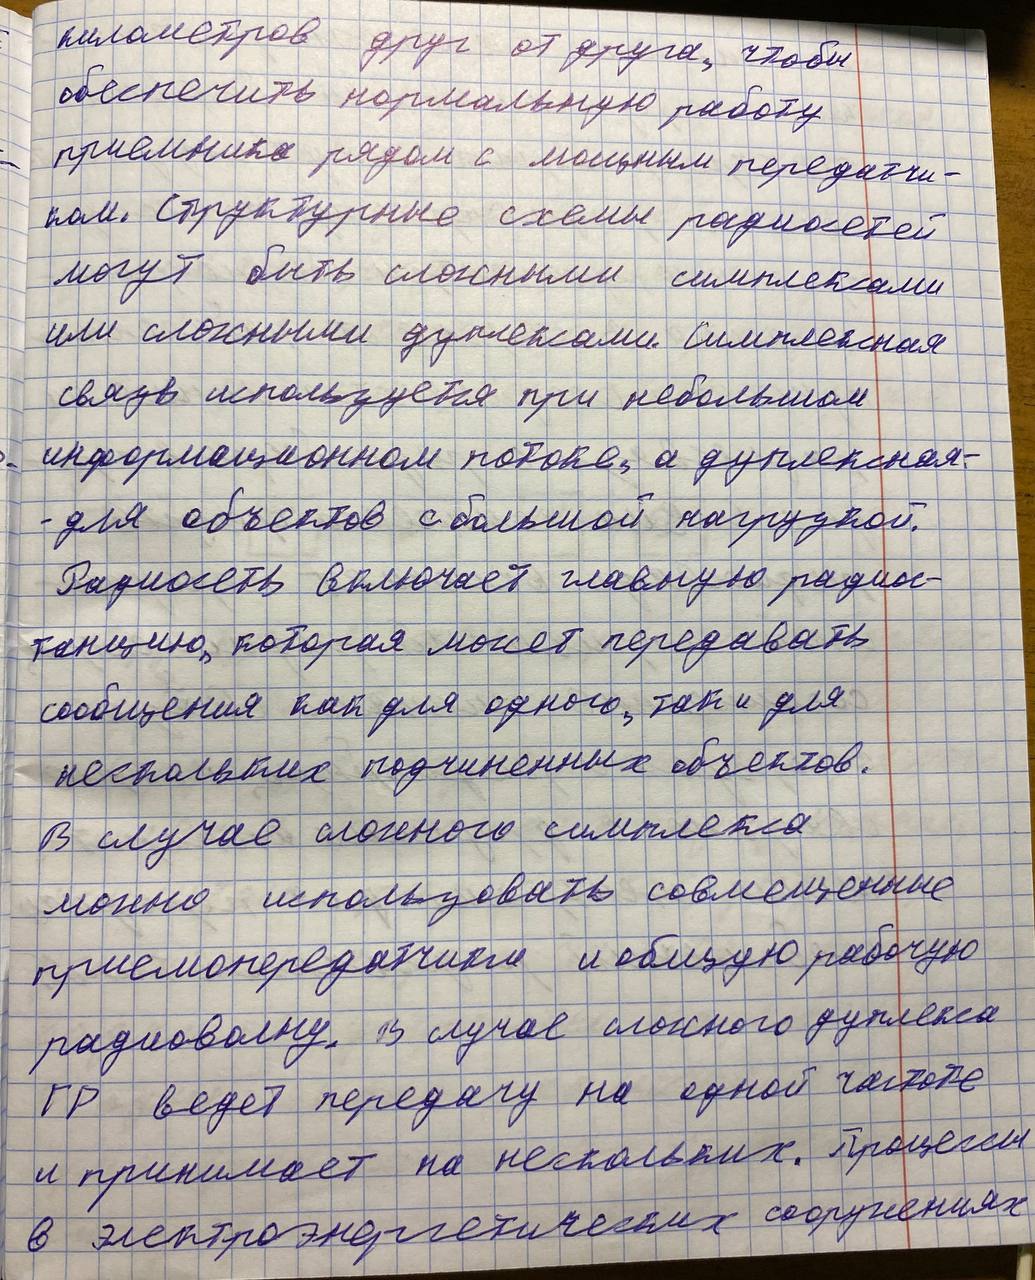 километров друг от друга, чтобы
обеспечить нормальную работу
приемника рядом с мощным передатчи-
ком. Структурные схемы радиосетей
могут быть сложными симплексами
или сложными дуплексами. Симплексная
связь используется при небольшом
информационном потоке, а дуплексная-
-для объектов с большой нагрузкой.
Радиосеть включает главную радиос-
танцию, которая может передавать
сообщения как для одного, так и для
нескольких подчиненных объектов.
В случае сложного симплекса
можно использовать совмещенные
приемопередатчики и общую рабочую
радиоволну. В случае сложного дуплекса
ГР ведет передачу на одной частоте
и принимает на нескольких. Процессы
в электроэнергетических сооружениях